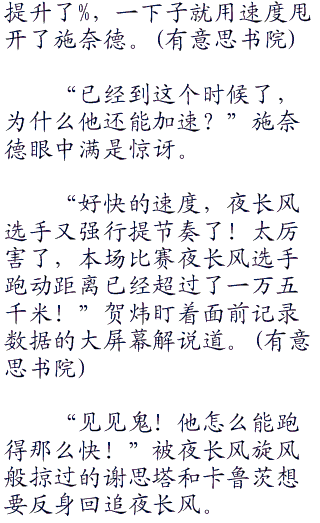 提升了%，一下子就用速度甩
开了施奈德。(有意思书院)
“已经到这个时候了，
为什么他还能加速？”施奈
德眼中满是惊讶。
“好快的速度，夜长风
选手又强行提节奏了！太厉
害了，本场比赛夜长风选手
跑动距离已经超过了一万五
千米！”贺炜盯着面前记录
数据的大屏幕解说道。(有意
思书院)
“见见鬼！他怎么能跑
得那么快！”被夜长风旋风
般掠过的谢思塔和卡鲁茨想
要反身回追夜长风。